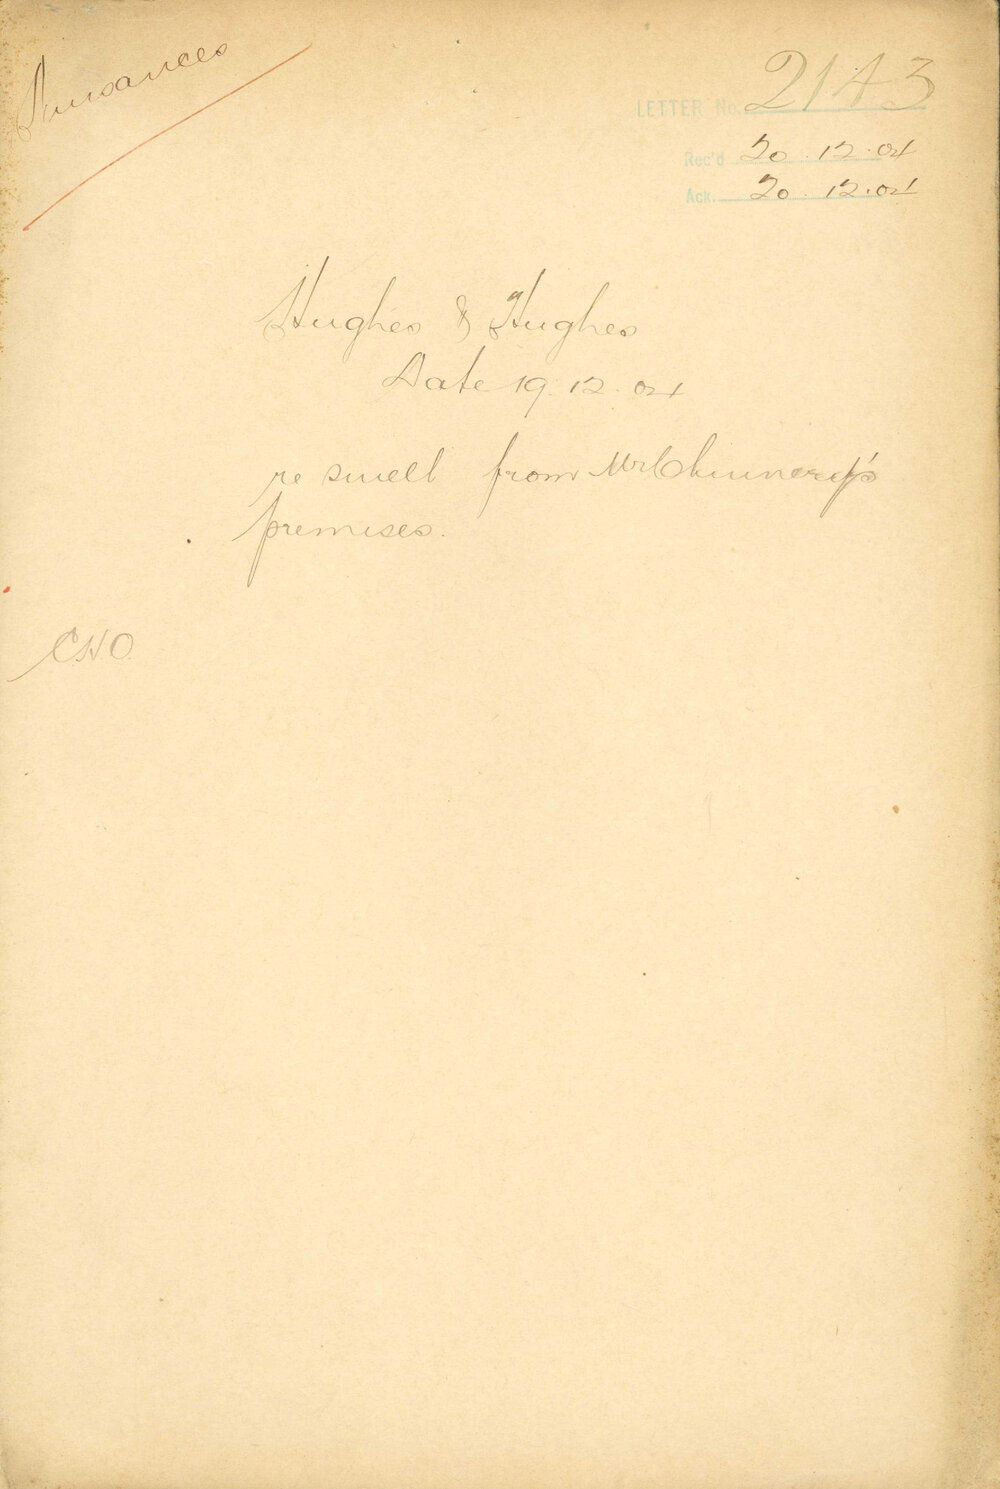 Nuisances
LETTER No. 2143
Rec'd 20.12.04
Ack. 20.12.04
Hughes & Hughes
Date 19.12.04
re smell from Mr Chinnery's
premises.
C.H.O.